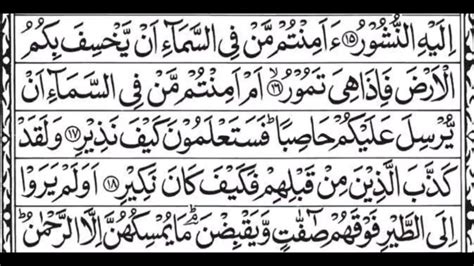 اِلَيْهِ النُّشُوْرُ ۝۱۵ ءَاَمِنْتُمْ مَّنْ فِى السَّمَآءِ اَنْ يَّخْسِفَ بِكُمُ
الْاَرْضَ فَاِذَا هِىَ تَمُوْرُ ۙ۝۱۶ اَمْ اَمِنْتُمْ مَّنْ فِى السَّمَآءِ اَنْ
يُّرْسِلَ عَلَيْكُمْ حَاصِبًا ؕ فَسَتَعْلَمُوْنَ كَيْفَ نَذِيْرِ ۝۱۷ وَلَقَدْ
كَذَّبَ الَّذِيْنَ مِنْ قَبْلِهِمْ فَكَيْفَ كَانَ نَكِيْرِ ۝۱۸ اَوَلَمْ يَرَوْا
اِلَى الطَّيْرِ فَوْقَهُمْ صٰٓفّٰتٍ وَّيَقْبِضْنَ ؔۘؕ مَا يُمْسِكُهُنَّ اِلَّا الرَّحْمٰنُ ؕ